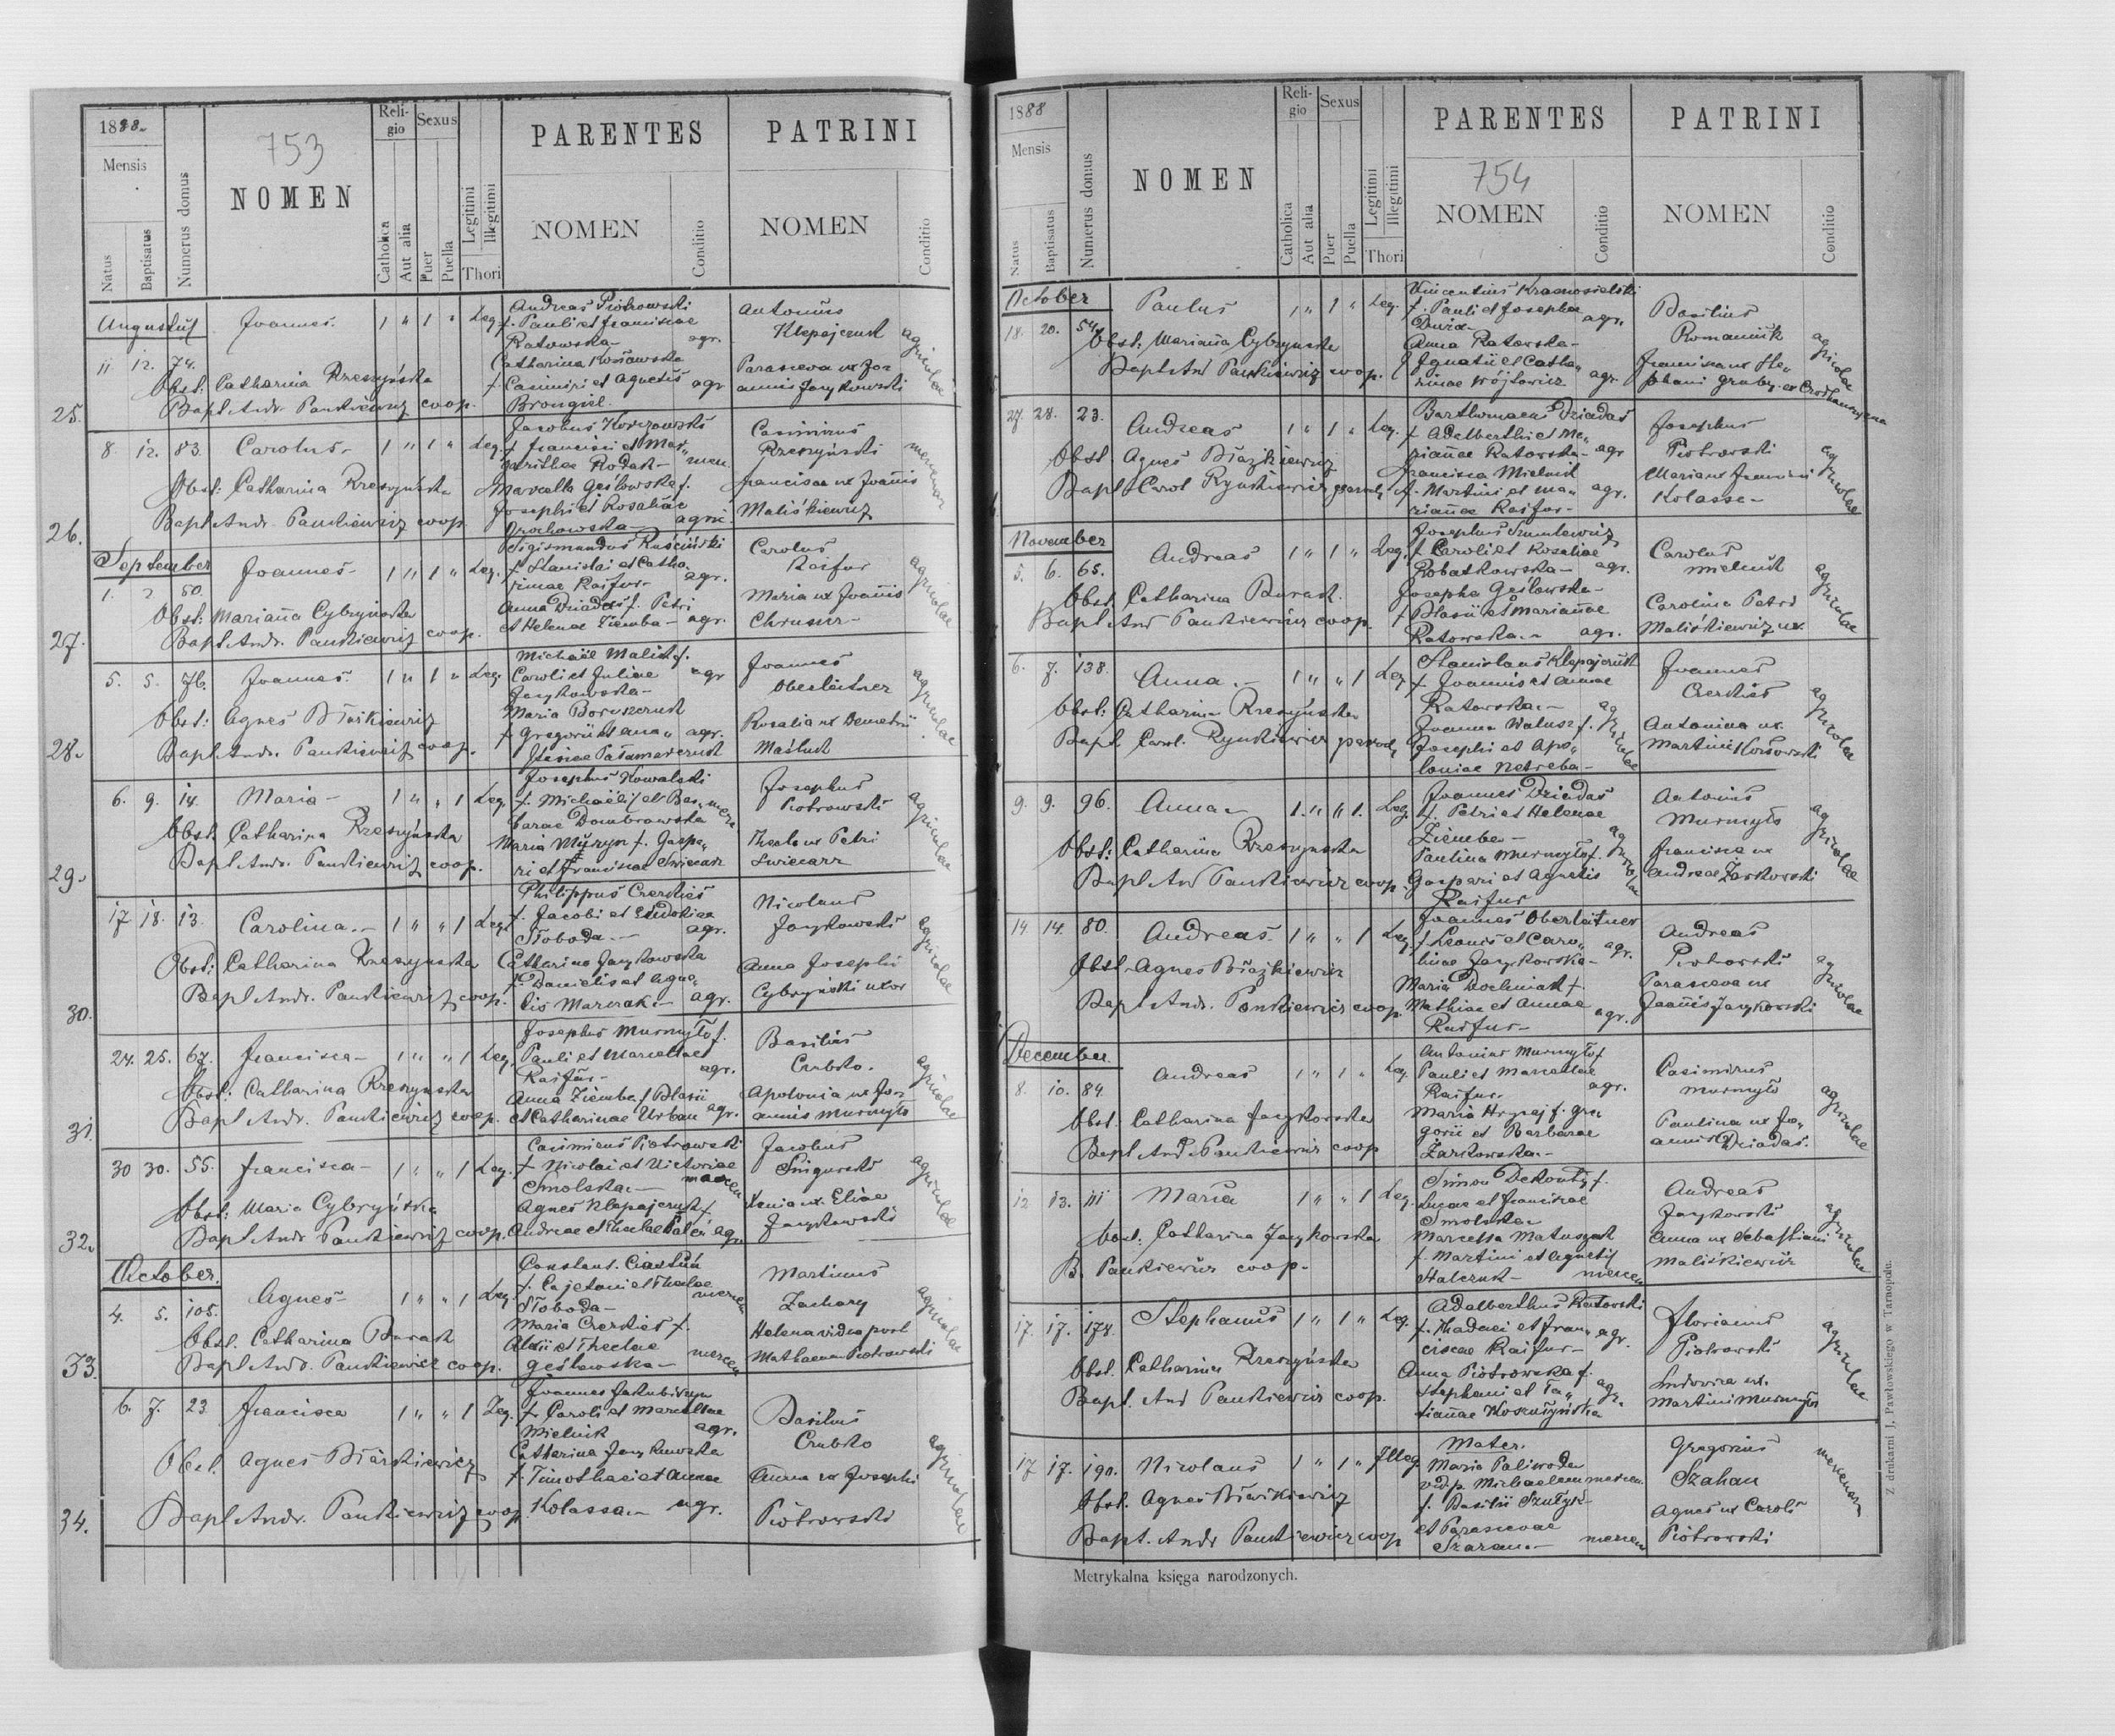 1888.
Mensis
Natus
Baptisatus
Numerus domus
753
NOMEN
Religio
Catholica
Aut alia
Sexus
Puer
Puella
Legitimi
Illegitimi
Thori
PARENTES
NOMEN
Conditio
PATRINI
NOMEN
Conditio
Augustus
25.
11 12. 74. Joannes. 1 " 1 " Leg.
Andreas Piotrowski
f. Pauli et Franciscae
Ratowska agr.
Catharina
f. Casimiri et Agnetis agr
Brongiel.
Antonius
Klepajczuk
Parasceva ux Jo=
annis Jazykowski
agricolae
Obst. Catharina Rzeszyńska
Bapt Andr. Pankiewicz coop.
26.
8 12. 83. Carolus 1 " 1 " Leg.
Jacobus
f. Francisci et Mar=
garithae Rodak mer.
Marcella Gęsłowska f.
Josephi et Rosaliae
Grochowska agric.
Casimirus
Rzeszyński
Francisca ux Joannis
Maliśkiewicz
Obst: Catharina Rzeszyńska
Bapt Andr. Pankiewicz coop.
September
27.
1. 2 50. Joannes 1 " 1 " Leg.
Sigismundus Ruściński
f. Stanislai et Catha=
rinae Raifur agr.
Anna Dziadas f. Petri
et Helenae Ziemba agr.
Carolus
Raifur
Maria ux Joannis
agricolae
Obst: Marianna Cybryńska
Bapt Andr. Pankiewicz coop.
28.
5. 5. 76. Joannes. 1 " 1 " Leg.
Michaël Malick f.
Caroli et Juliae agr
Jazykowska
Maria Boruszczuk
f. Gregorii et Ana= agr.
stasiae Pałamarczuk
Joannes
Oberleitner
Rosalia ux Demetrii
Maśluk
agricolae
Obst: Agnes Błaśkiewicz
Bapt Andr. Pankiewicz coop.
29.
6. 9. 14. Maria 1 " " 1 Leg.
Josephus Kowalski
f. Michaëlis et Bar=
barae Dombrowska
Maria Muzyn f. Gaspe=
ri et Francisca Świecarz
Josephus
Piotrowski
Thecla ux Petri
Świecarz
agricolae
Obst. Catharina Rzeszyńska
Bapt Andr. Pankiewicz coop.
30.
17 18. 13. Carolina. 1 " " 1 Leg.
Philippus Czerkies
f. Jacobi et Eudokiae
Słoboda agr.
Catharina Jazykowska
f. Danielis et Agne=
tis Marczak agr.
Nicolaus
Jazykowski
Anna Josephi
Cybryński uxor
agricolae
Obst: Catharina Rzeszyńska
Bapt Andr. Pankiewicz coop.
31.
24. 25. 67. Francisca 1 " " 1 Leg.
Josephus Murmyło f.
Pauli et Marcellae
Raifur agr.
Anna Ziemba f Blasii
et Catharinae Urban agr.
Basilius
Czubko.
Apolonia ux Jo=
annis Murmyło
agricolae
Obst: Catharina Rzeszyńska
Bapt Andr. Pankiewicz coop.
32.
30 30. 55. Francisca 1 " " 1 Leg.
Casimirus Piotrowski
f. Nicolai et Victoriae
Smolska mercen
Agnes Klepajczuk f.
Andreae et Theclae agr.
Jacobus
Śnigurski
Xenia ux. Eliae
Jazykowski
agricolae
Obst: Maria Cybryńska
Bapt Andr Pankiewicz coop.
October.
33.
4. 5. 105. Agnes 1 " " 1 Leg.
Constant.
f. Cajetani et Theclae
Słoboda mercen
Maria Czerkies f.
Alexii et Theclae
Gęsłowska mercen
Martinus
Zachary
Helena vidua post
Mathaeum Piotrowski
agricolae
Obst. Catharina Burak
Bapt Andr. Pankiewicz coop.
34.
6. 7. 23 Francisca 1 " " 1 Leg.
Joannes
f. Caroli et Marcellae
Mielnik agr.
Catharina Jazykowska
f. Timothaei et Annae
Kolassa agr.
Basilius
Czubko
Anna ux Josephi
Piotrowski
agricolae
Obst. Agnes Błaśkiewicz
Bapt Andr. Pankiewicz coop.
1888
Mensis
Natus
Baptisatus
Numerus domus
NOMEN
Religio
Catholica
Aut alia
Sexus
Puer
Puella
Legitimi
Illegitimi
Thori
PARENTES
754
NOMEN
Conditio
PATRINI
NOMEN
Conditio
October
18. 20. 54 Paulus 1 " 1 " Leg.
Vincentius Krasnosielski
f. Pauli et Josephae
agr.
Anna Ratowska
f Ignatii et Catha=
rinae Wójtowicz agr.
Basilius
Romaniuk
Francisca ux Ste=
phani
agricolae
Obst. Marianna Cybryńska
Bapt And Pankiewicz coop.
27 28. 23. Andreas 1 " 1 " Leg.
Bartholomaeus Dziadas
f. Adalberthi et Ma=
riannae Ratowska agr
Francisca Mielnik
f. Martini et Ma= agr.
riannae Raifur
Josephus
Piotrowski
Kolassa
agricolae
Obst. Agnes Błaźkiewicz
Bapt Carol Rynkiewicz paroch
November
5. 6. 65. Andreas 1 " 1 " Leg.
Josephus
f. Caroli et Rosaliae
Robatkowska agr.
Josepha Gęsłowska
f Blasii et Mariannae
Ratowska agr.
Carolus
Mielnik
Carolina Petri
Maliśkiewicz ux.
agricolae
Obst. Catharina Burak.
Bapt And Pankiewicz coop.
6. 7. 138. Anna. 1 " " 1 Leg
Stanislaus Klepajczuk
f. Joannis et Annae
Ratowska
Joanna Walusz f.
Josephi et Apo=
loniae Netreba
agricolae
Joannes
Czerkies
Antonina ux.
Martini
agricolae
Obst: Catharina Rzeszyńska
Bapt. Carol. Rynkiewicz paroch
9. 9. 96. Anna 1. " " 1. Leg.
Joannes Dziadas
f. Petri et Helenae
Ziemba
Paulina Murmyło f.
Gaspari et Agnetis
Raifur
agricolae
Antonius
Murmyło
Francisca ux
Andreae Żarkowski
agricolae
Obst: Catharina Rzeszyńska
Bapt And Pankiewicz coop.
14 14. 80. Andreas. 1 " " 1 Leg.
Joannes Oberleitner
f. Leonis et Caro=
linae Jazykowska agr.
Maria Dochniak f.
Mathiae et Annae
Raifur agr.
Andreas
Piotrowski
Parasceva ux
Joannis Jazykowski
agricolae
Obst. Agnes Błaźkiewicz
Bapt Andr. Pankiewicz coop.
December.
8. 10. 84. Andreas 1 " 1 " Leg.
Antonius Murmyło f
Pauli et Marcellae
Raifur. agr.
Maria Hrycaj f. Gre=
gorii et Barbarae
Żarkowska.
Casimirus
Murmyło
Paulina ux Jo=
annis Dziadas.
agricolae
Obst. Catharina Jazykowska
Bapt And. Pankiewicz coop
12 13. 111 Maria 1 " " 1 Leg.
Simon Dekonty f.
Lucae et Franciscae
Smolska
Marcella Matuszak
f. Martini et Agnetis
Halczuk mercen
Andreas
Jazykowski
Anna ux Sebastiani
Maliśkiewicz
agricolae
Obst: Catharina Jazykowska
B. Pankiewicz coop.
17. 17. 178. Stephanus 1 " 1 " Leg.
Adalberthus Ratowski
f. Thadaei et Fran=
ciscae Raifur agr.
Anna Piotrowska f.
Stephani et Ta=
tiannae agr.
Florianus
Piotrowski
Ludovica ux.
Martini Murmyło
agricolae
Obst. Catharina Rzeszyńska
Bapt. And Pankiewicz coop.
17 17. 190. Nicolaus 1 " 1 " Illeg.
Mater.
Maria Paliwoda
vid p. Michaelem mercen.
f. Basilii
et Parascevae
mercen
Gregorius
Szahan
Agnes ux Caroli
Piotrowski
Obst. Agnes Błaśkiewicz
Bapt. Andr Pankiewicz coop
Metrykalna księga narodzonych.
Z drukarni J. Pawłowskiego w Tarnopolu.